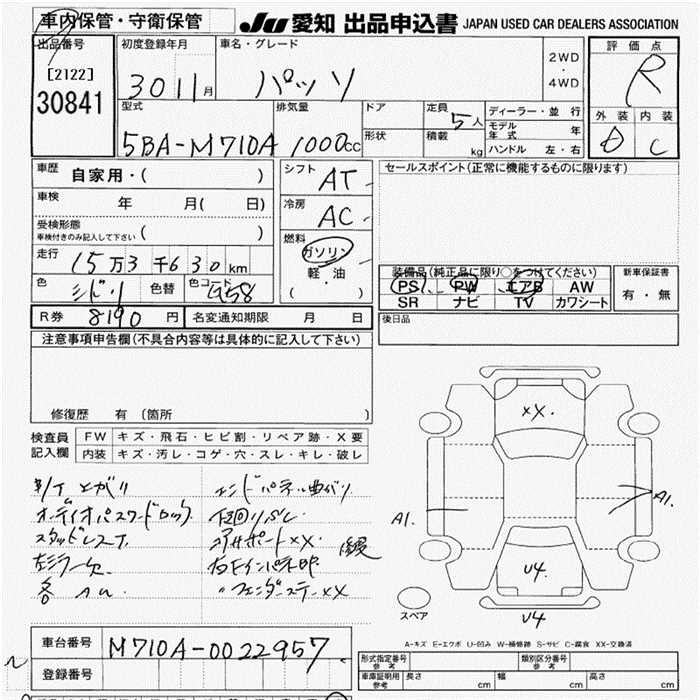 車内保管・守衛保管
JU 愛知 出品申込書 JAPAN USED CAR DEALERS ASSOCIATION
出品番号
[2122]
30841
初度登録年月
30 11月
車名・グレード
パッソ
2WD
・
4WD
評価点
R
外装 内装
C
型式
5BA-M710A
排気量
1000cc
ドア
形状
定員
5人
積載
kg
ディーラー・並行
モデル年式 年
ハンドル 左・右
車歴
自家用・( )
車検
年 月( 日)
受検形態
車検付きのみ記入して下さい ( )
走行
15万3千630km
色
ミドリ
色替
色コード
R券
8190円
名変通知期限 月 日
シフト
AT
冷房
AC
燃料
ガソリン
軽・油
( )
セールスポイント(正常に機能するものに限ります)
装備品(純正品に限り○をつけてください)
PS PW エアB AW
SR ナビ TV カワシート
新車保証書
有・無
後日品
注意事項申告欄(不具合内容等は具体的に記入して下さい)
修復歴 有(箇所
検査員
記入欄
FW キズ・飛石・ヒビ割・リペア跡・X要
内装 キズ・汚レ・コゲ・穴・スレ・キレ・破レ
オーディオパスワードロック
スタッドレスT
左ミラー欠
エンドパネル曲がり
XX
A1.
A1.
U4.
U4
スペア
A-キズ E-エクボ U-凹み W-補修跡 S-サビ C-腐食 XX-交換済
車台番号
M710A-0022957
登録番号
形式指定番号
参考
類別区分番号
参考
車庫証明用
参考
長さ cm 幅 cm 高さ cm